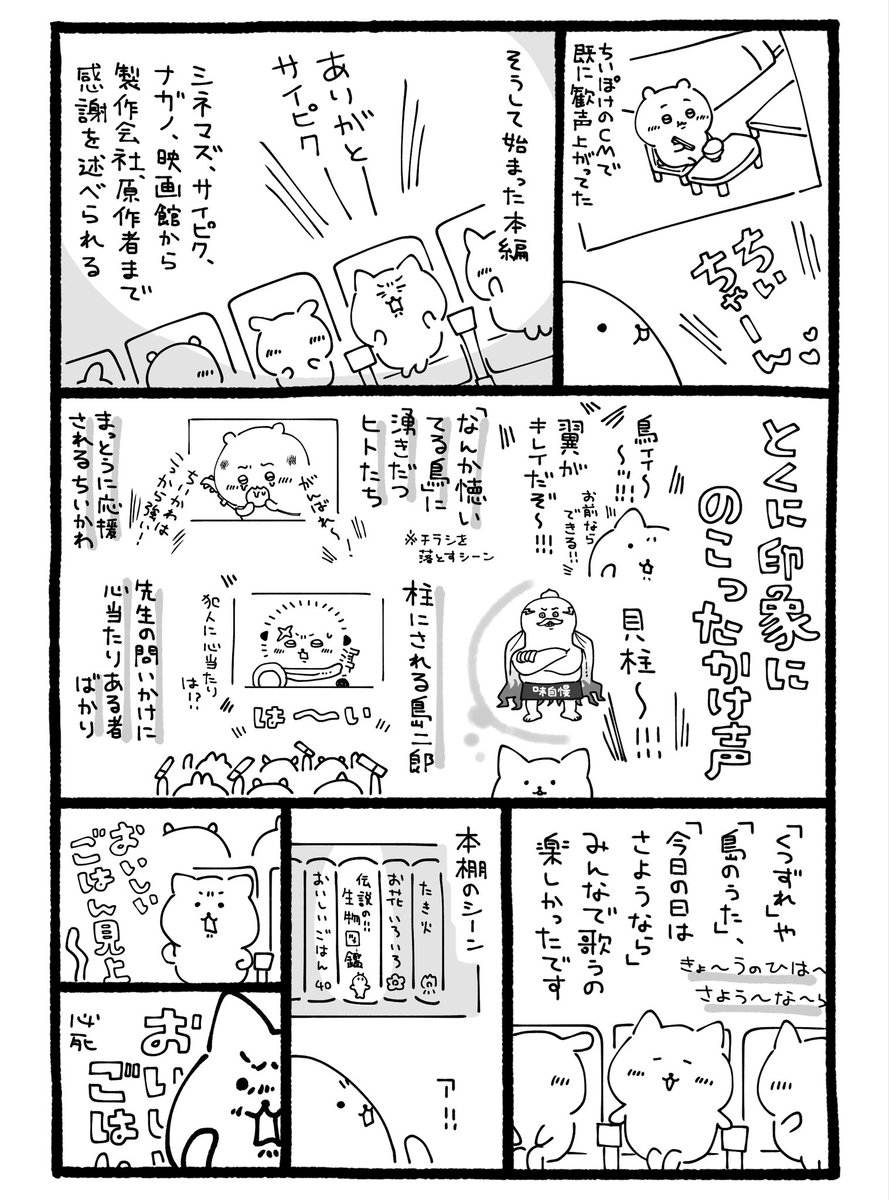 ちいぽけのCMで
既に歓声上がってた
ちぃ
ちゃーん
そうして始まった本編
ありがとー
サイピク
シネマズ、サイピク、
ナガノ、映画館から
製作会社、原作者まで
感謝を述べられる
とくに印象に
のこったかけ声
鳥ィィ〜〜!!!
翼が
キレイだぞ〜!!!
お前なら
できる!!!
「なんか憑い
てる鳥」に
湧きだつ
ヒトたち
※チラシを
落とすシーン
がんばれ〜!
ちいかわは
強い!
まっとうに応援
されるちいかわ
貝柱〜!!!
味自慢
柱にされる島二郎
犯人に心当たり
は!?
は〜い
先生の問いかけに
心当たりある者
ばかり
「くつずれ」や
「島のうた」、
「今日の日は
さようなら」
みんなで歌うの
楽しかったです
きょ〜うのひは〜
さよう〜な〜ら
本棚のシーン
たき火
お花いろいろ
伝説の!!
生物図鑑
おいしいごはん40
ア!!
おいしい
ごはん見上
おいし
ごはん
心死